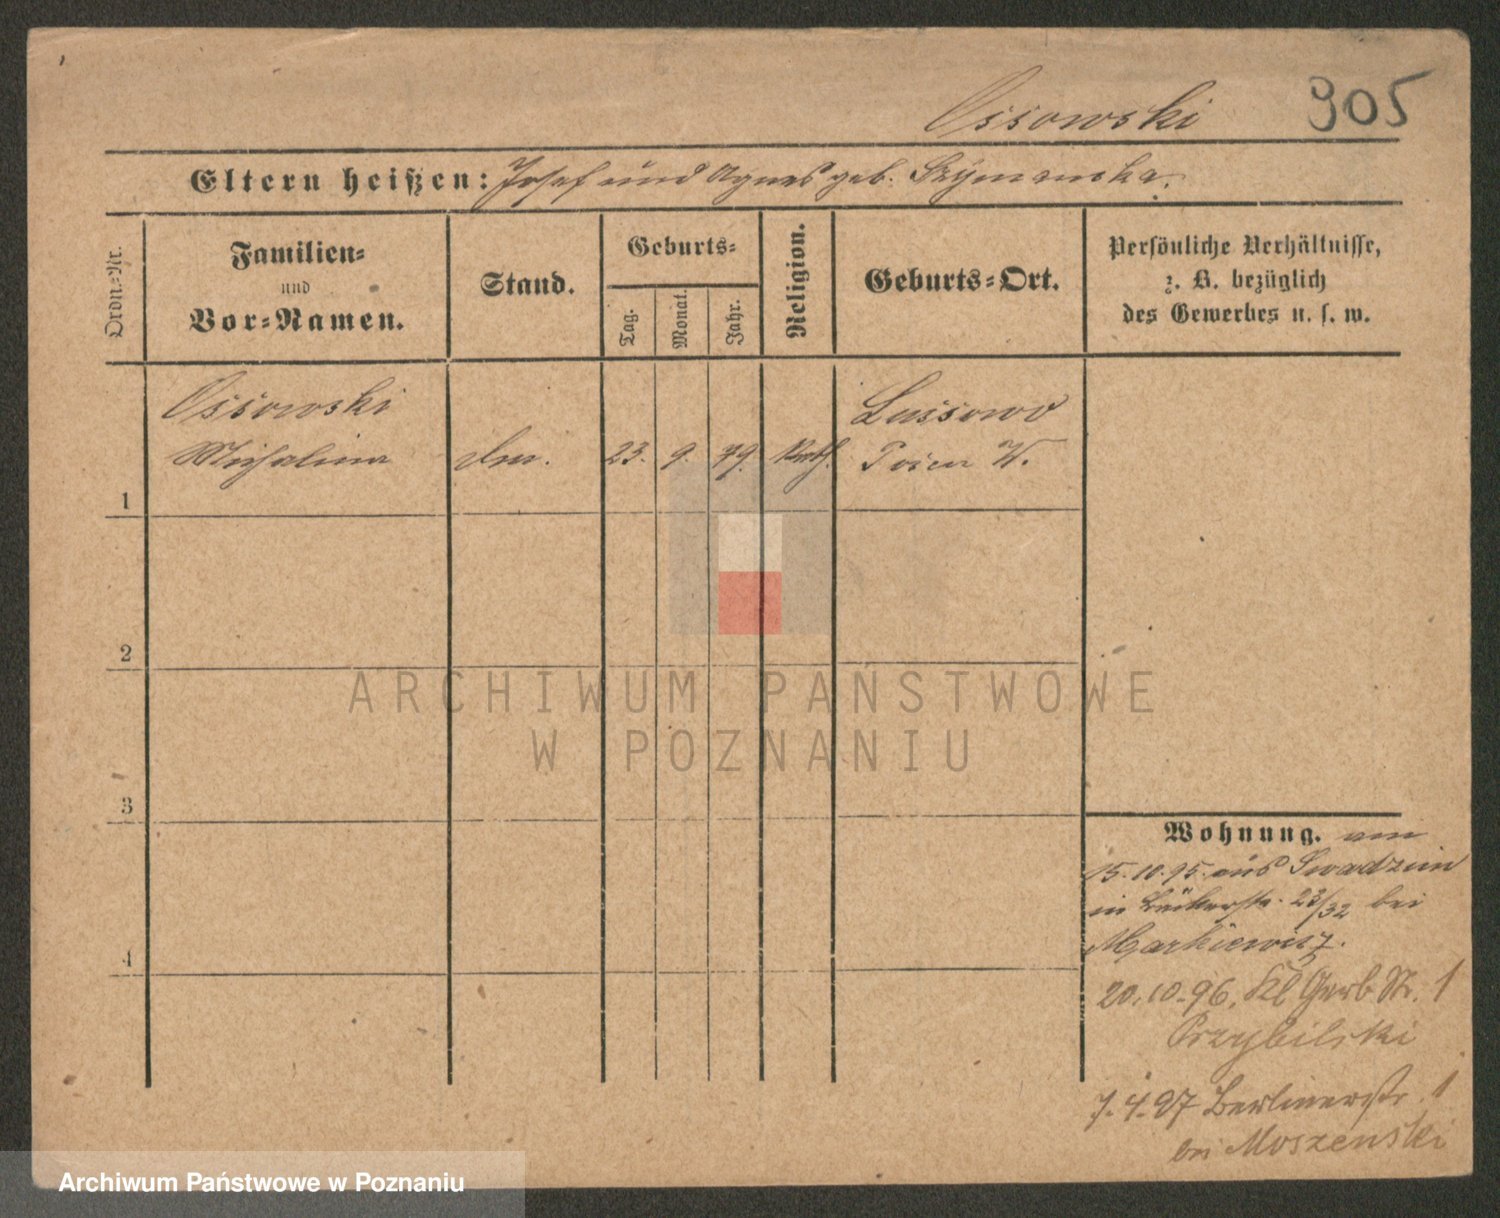 Ossowski 905
Eltern heißen: Josef und Agnes geb. Szymanska.
Ordn.-Nr.
Familien-
und
Vor-Namen.
Stand.
Geburts-
Tag.
Monat.
Jahr.
Religion.
Geburts-Ort.
Persönliche Verhältnisse,
z. B. bezüglich
des Gewerbes u. s. w.
Ossowski
Michalina
23. 9. 79. Kath.
Lussowo
Posen W.
1
2
3
4
Wohnung. am
15.10.95 aus Swadzim
in Bäckerstr. 23/32 bei
Markiewicz.
20.10.96. Kl Gerb Str. 1
Przybilski
7.4.97 Berlinerstr. 1
bei Moszenski
ARCHIWUM PAŃSTWOWE
W POZNANIU
Archiwum Państwowe w Poznaniu